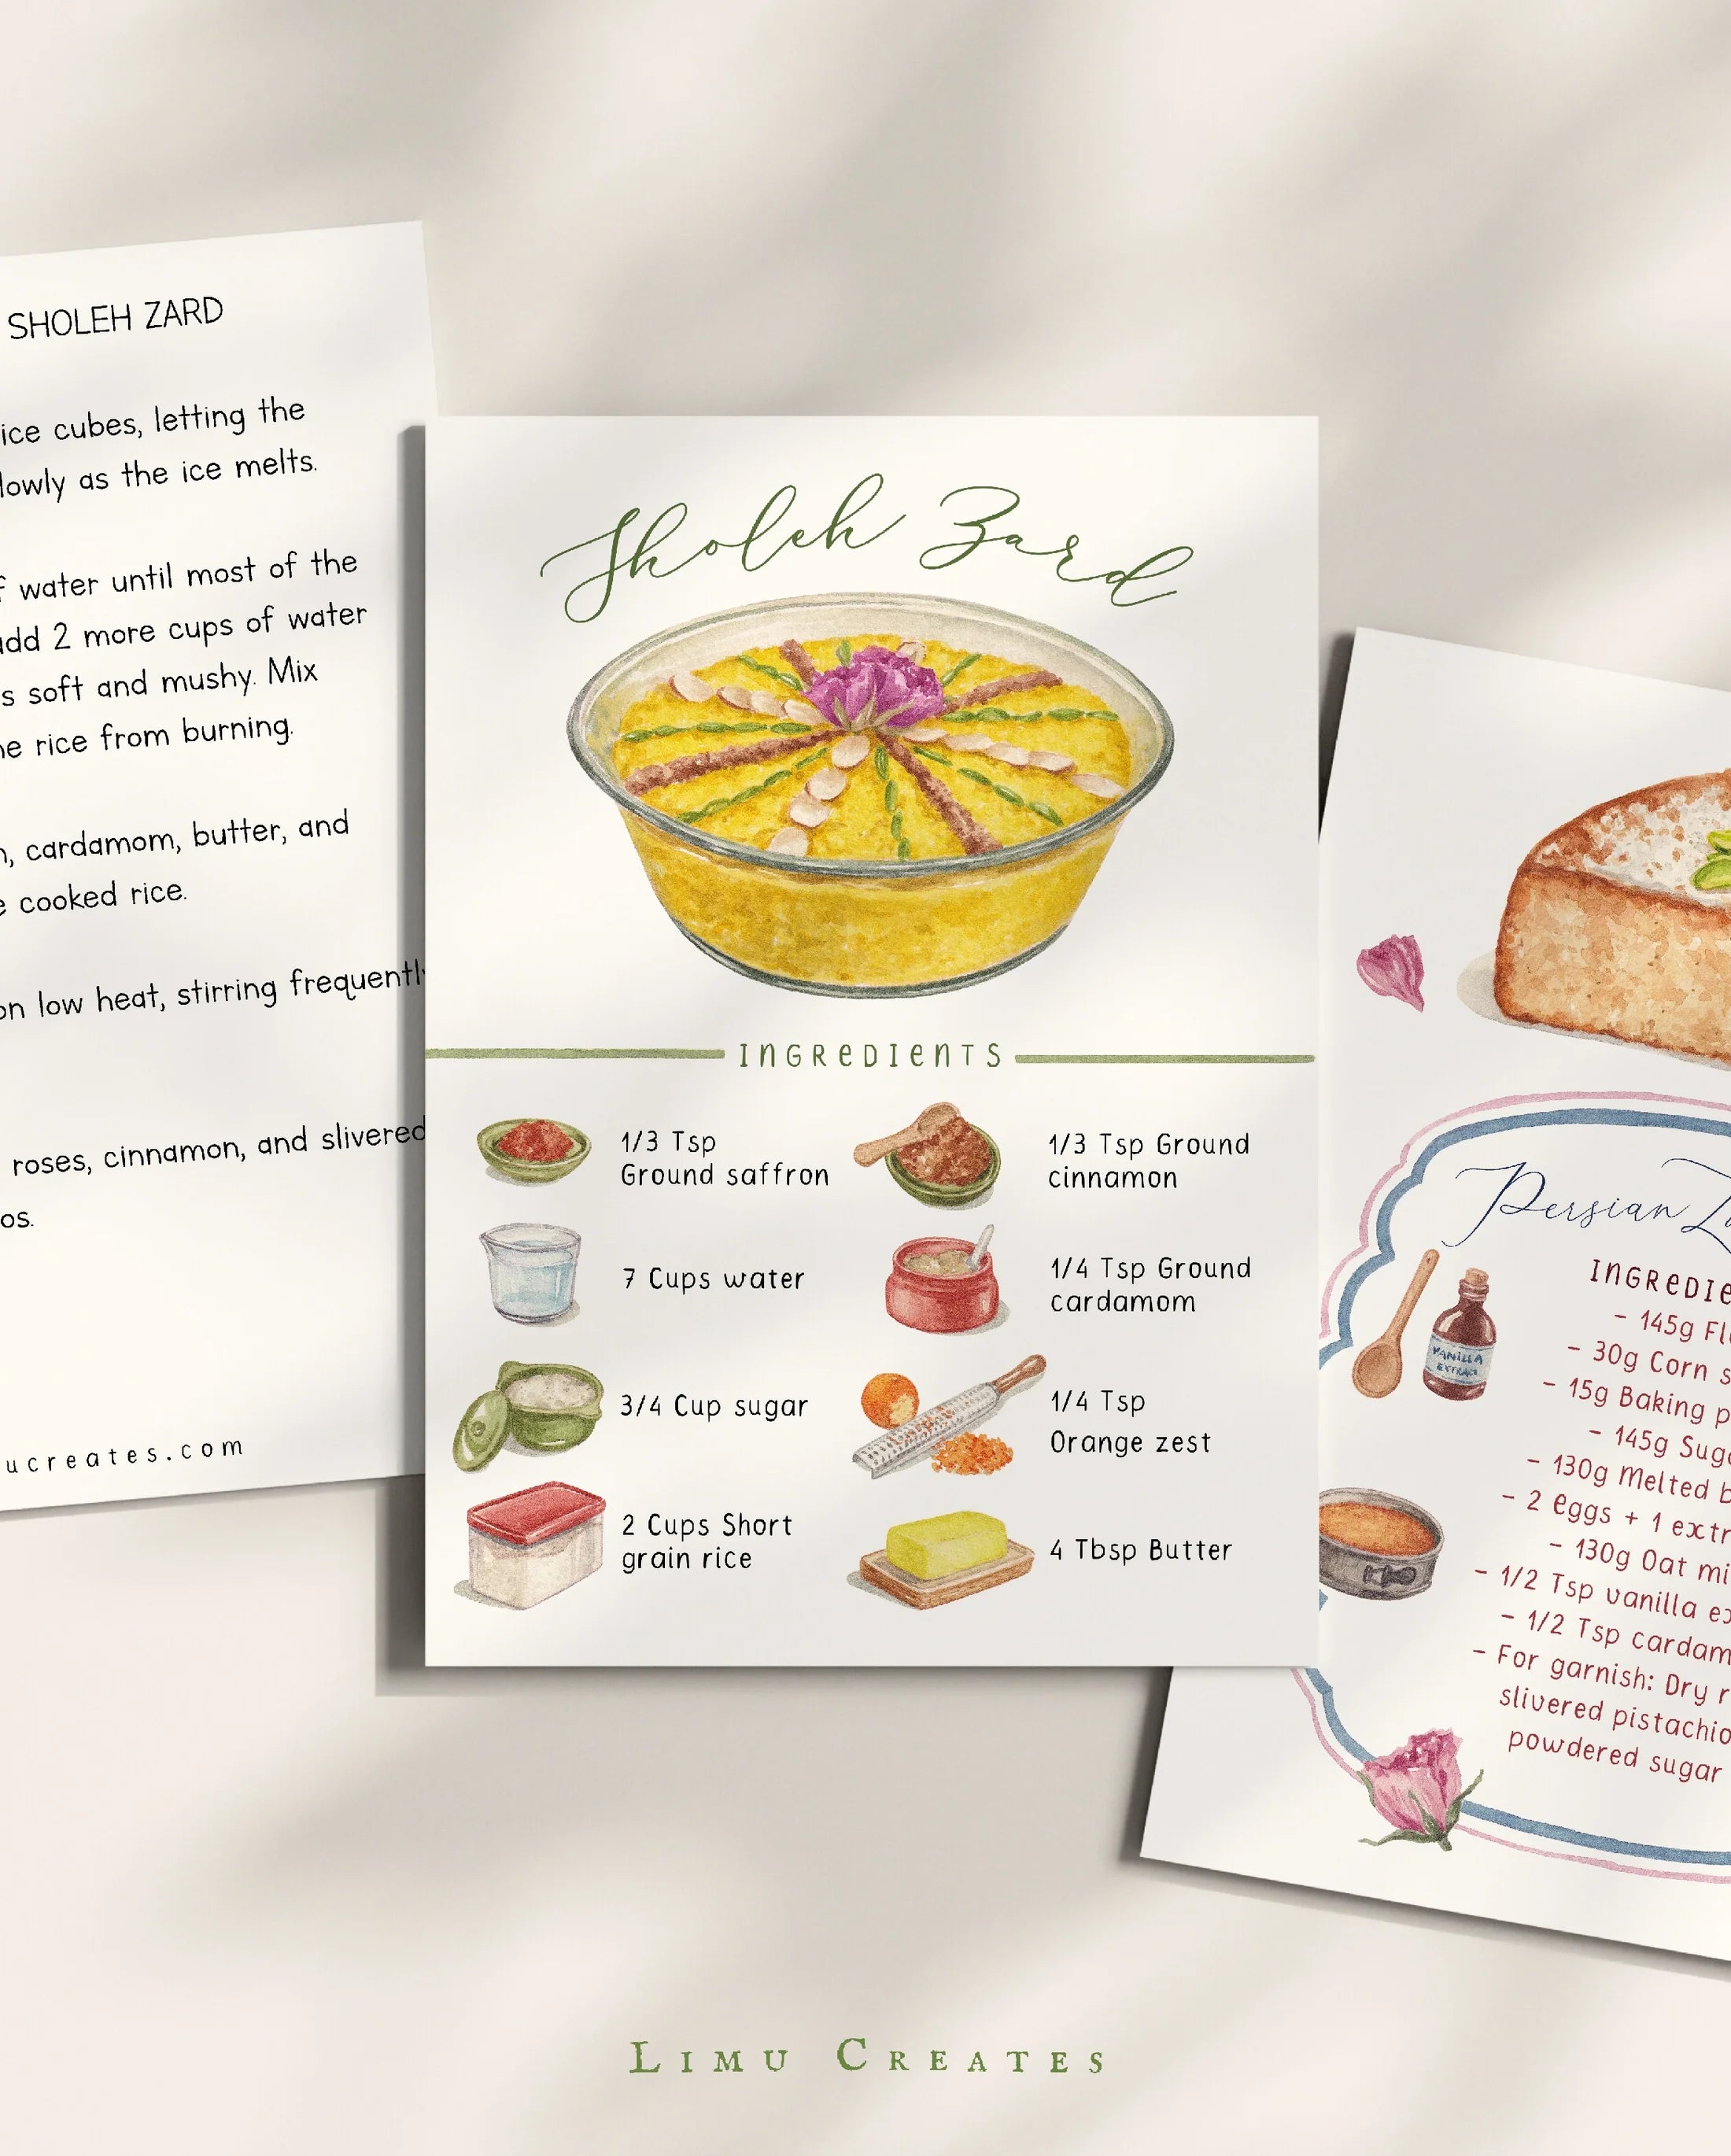 SHOLEH ZARD
ice cubes, letting the
as the ice melts.
water until most of the
2 more cups of water
soft and mushy. Mix
rice from burning.
cardamom, butter, and
cooked rice.
on low heat, stirring
roses, cinnamon, and slivered
Sholeh Zard
INGREDIENTS
1/3 Tsp
Ground saffron
1/3 Tsp Ground
cinnamon
7 Cups water
1/4 Tsp Ground
cardamom
3/4 Cup sugar
1/4 Tsp
Orange zest
2 Cups Short
grain rice
4 Tbsp Butter
Persian
VANILLA
EXTRACT
- 145g
- 30g Corn
- 15g Baking
- 145g
- 130g Melted
- 2 eggs + 1
- 130g Oat
- 1/2 Tsp vanilla
- 1/2 Tsp
- For garnish: Dry
slivered
powdered sugar
LIMU CREATES